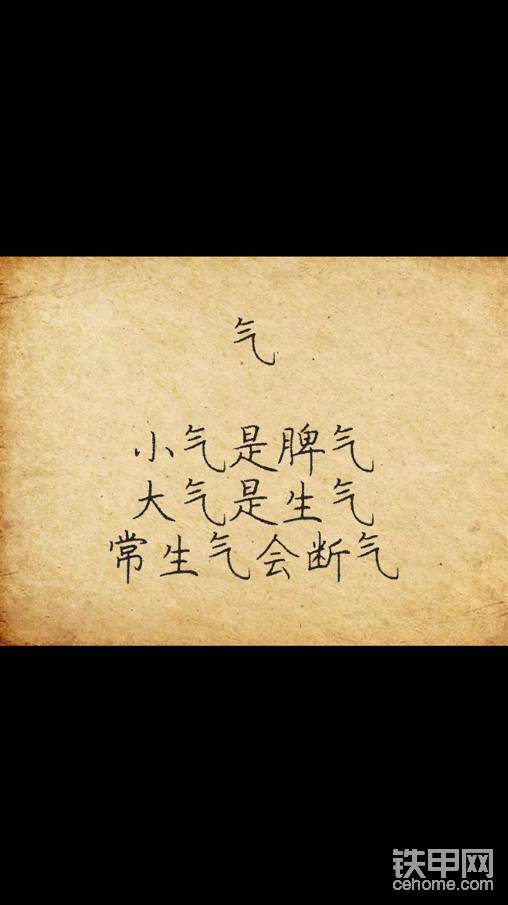 气
小气是脾气
大气是生气
常生气会断气
铁甲网
cehome.com